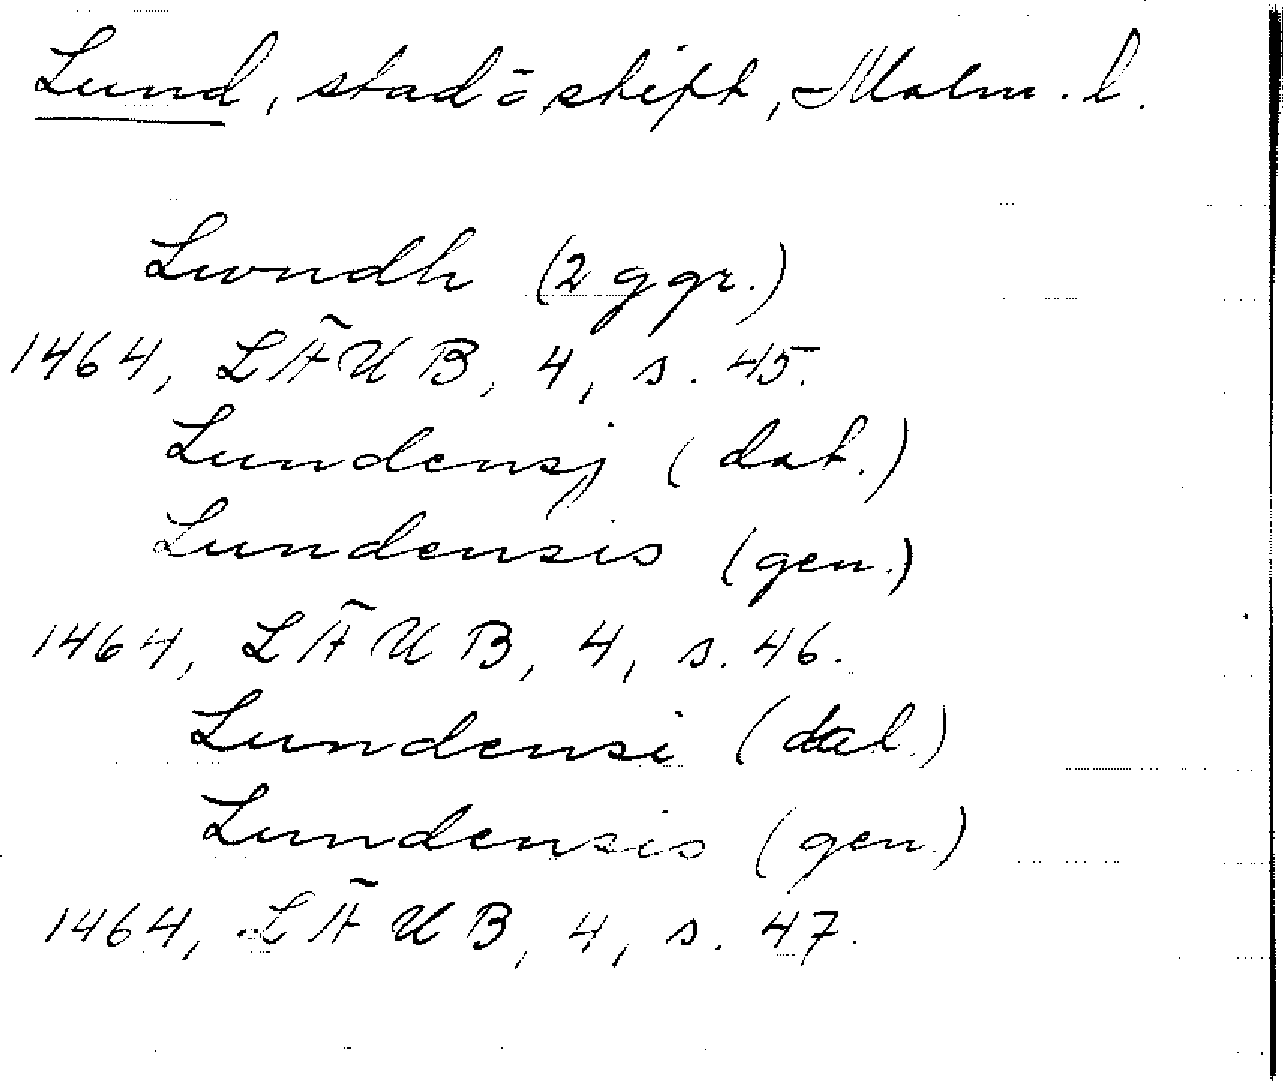 Lund, stad o stift, Malm. l.
Lwndh (2 ggr.)
1464, LÄUB, 4, s. 45.
Lundensj (dat.)
Lundensis (gen.)
1464, LÄUB, 4, s. 46.
Lundensi (dat.)
Lundensis (gen.)
1464, LÄUB, 4, s. 47.